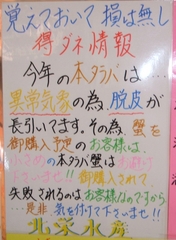 覚えておいて損は無し
得ダネ情報
今年の本タラバは…
異常気象の為、脱皮が
長引いてます。その為 蟹を
御購入予定のお客様は、
おさめの本タラバ蟹は
下さいませ!!御購入されて
失敗されるのはお客様なのですから
…是非、気を付けて下さいませ!!
北栄水産